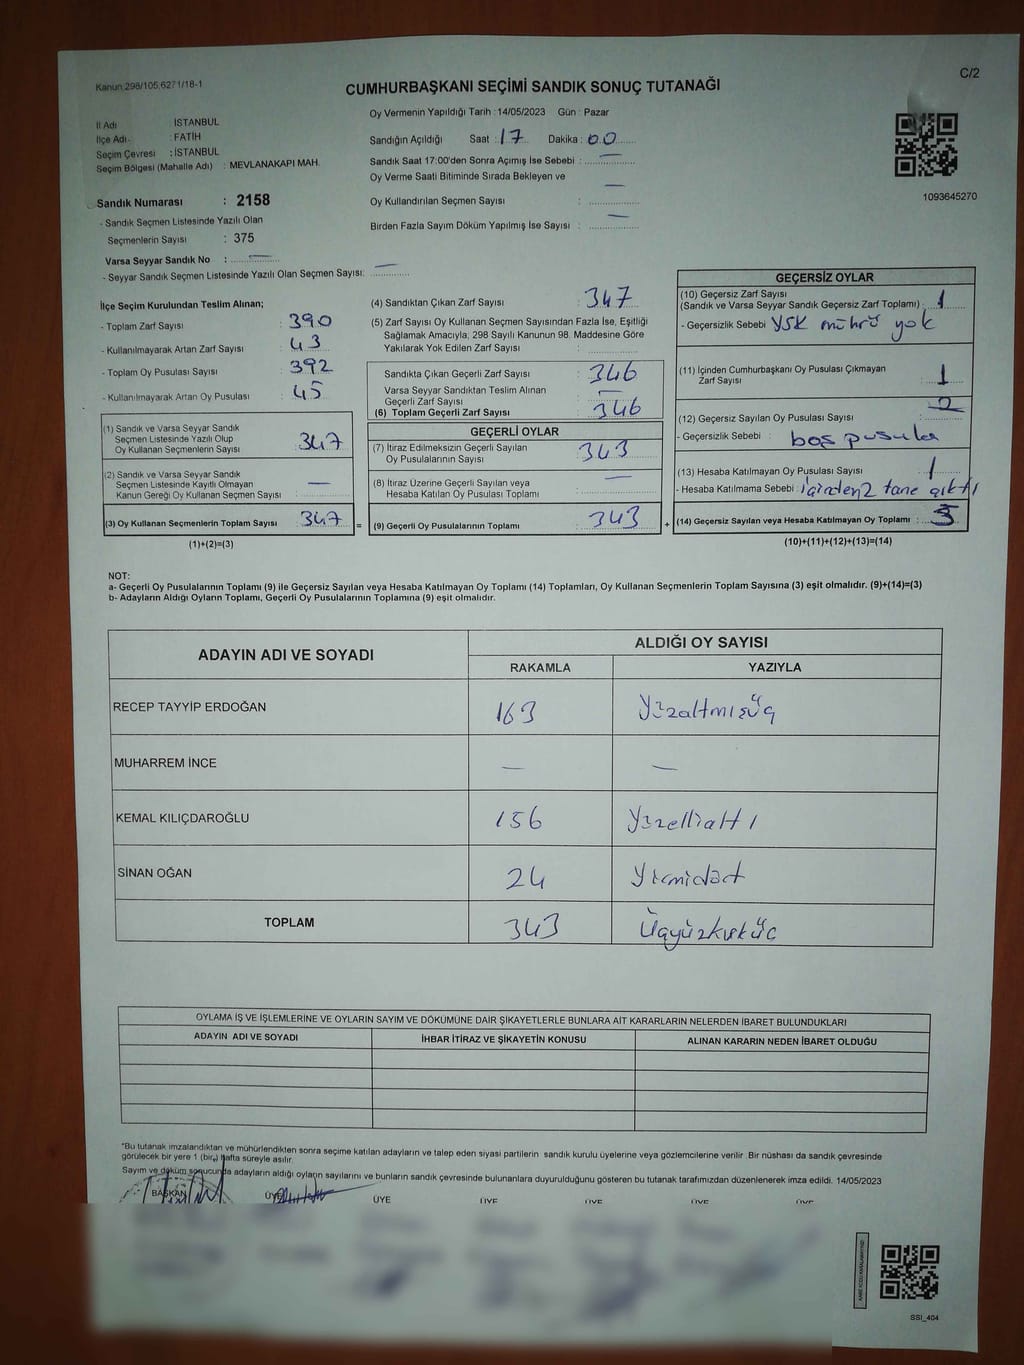 Kanun 298/105,6271/18-1
C/2
CUMHURBAŞKANI SEÇİMİ SANDIK SONUÇ TUTANAĞI
Oy Vermenin Yapıldığı Tarih : 14/05/2023 Gün : Pazar
İl Adı İSTANBUL
İlçe Adı : FATİH
Seçim Çevresi : İSTANBUL
Seçim Bölgesi (Mahalle Adı) : MEVLANAKAPI MAH.
Sandığın Açıldığı Saat : 17 Dakika : 00
Sandık Saat 17:00'den Sonra Açımış İse Sebebi : —
Oy Verme Saati Bitiminde Sırada Bekleyen ve
Oy Kullandırılan Seçmen Sayısı : —
Birden Fazla Sayım Döküm Yapılmış İse Sayısı : —
1093645270
Sandık Numarası : 2158
- Sandık Seçmen Listesinde Yazılı Olan
Seçmenlerin Sayısı : 375
Varsa Seyyar Sandık No : —
- Seyyar Sandık Seçmen Listesinde Yazılı Olan Seçmen Sayısı: —
İlçe Seçim Kurulundan Teslim Alınan;
- Toplam Zarf Sayısı : 390
- Kullanılmayarak Artan Zarf Sayısı : 43
- Toplam Oy Pusulası Sayısı : 392
- Kullanılmayarak Artan Oy Pusulası : 45
(1) Sandık ve Varsa Seyyar Sandık
Seçmen Listesinde Yazılı Olup
Oy Kullanan Seçmenlerin Sayısı : 347
(2) Sandık ve Varsa Seyyar Sandık
Seçmen Listesinde Kayıtlı Olmayan
Kanun Gereği Oy Kullanan Seçmen Sayısı : —
(3) Oy Kullanan Seçmenlerin Toplam Sayısı : 347 =
(1)+(2)=(3)
(4) Sandıktan Çıkan Zarf Sayısı : 347
(5) Zarf Sayısı Oy Kullanan Seçmen Sayısından Fazla İse, Eşitliği
Sağlamak Amacıyla, 298 Sayılı Kanunun 98. Maddesine Göre
Yakılarak Yok Edilen Zarf Sayısı :
Sandıkta Çıkan Geçerli Zarf Sayısı : 346
Varsa Seyyar Sandıktan Teslim Alınan
Geçerli Zarf Sayısı : —
(6) Toplam Geçerli Zarf Sayısı : 346
GEÇERLİ OYLAR
(7) İtiraz Edilmeksizin Geçerli Sayılan
Oy Pusulalarının Sayısı : 343
(8) İtiraz Üzerine Geçerli Sayılan veya
Hesaba Katılan Oy Pusulası Toplamı : —
(9) Geçerli Oy Pusulalarının Toplamı : 343 +
GEÇERSİZ OYLAR
(10) Geçersiz Zarf Sayısı
(Sandık ve Varsa Seyyar Sandık Geçersiz Zarf Toplamı) : 1
- Geçersizlik Sebebi : YSK mührü yok
(11) İçinden Cumhurbaşkanı Oy Pusulası Çıkmayan
Zarf Sayısı : 1
(12) Geçersiz Sayılan Oy Pusulası Sayısı : 2
- Geçersizlik Sebebi : boş pusula
(13) Hesaba Katılmayan Oy Pusulası Sayısı : 1
- Hesaba Katılmama Sebebi : içinden 2 tane çıktı
(14) Geçersiz Sayılan veya Hesaba Katılmayan Oy Toplamı :
(10)+(11)+(12)+(13)=(14)
NOT:
a- Geçerli Oy Pusulalarının Toplamı (9) ile Geçersiz Sayılan veya Hesaba Katılmayan Oy Toplamı (14) Toplamları, Oy Kullanan Seçmenlerin Toplam Sayısına (3) eşit olmalıdır. (9)+(14)=(3)
b- Adayların Aldığı Oyların Toplamı, Geçerli Oy Pusulalarının Toplamına (9) eşit olmalıdır.
ADAYIN ADI VE SOYADI
ALDIĞI OY SAYISI
RAKAMLA YAZIYLA
RECEP TAYYİP ERDOĞAN 163 Yüzaltmışüç
MUHARREM İNCE — —
KEMAL KILIÇDAROĞLU 156 Yüzellialtı
SİNAN OĞAN 24 Yirmidört
TOPLAM 343 Üçyüzkırküç
OYLAMA İŞ VE İŞLEMLERİNE VE OYLARIN SAYIM VE DÖKÜMÜNE DAİR ŞİKAYETLERLE BUNLARA AİT KARARLARIN NELERDEN İBARET BULUNDUKLARI
ADAYIN ADI VE SOYADI İHBAR İTİRAZ VE ŞİKAYETİN KONUSU ALINAN KARARIN NEDEN İBARET OLDUĞU
*Bu tutanak imzalandıktan ve mühürlendikten sonra seçime katılan adayların ve talep eden siyasi partilerin sandık kurulu üyelerine veya gözlemcilerine verilir. Bir nüshası da sandık çevresinde
görülecek bir yere 1 (bir) hafta süreyle asılır.
Sayım ve döküm sonucunda adayların aldığı oyların sayılarını ve bunların sandık çevresinde bulunanlara duyurulduğunu gösteren bu tutanak tarafımızdan düzenlenerek imza edildi. 14/05/2023
BAŞKAN ÜYE ÜYE ÜYE ÜYE ÜYE ÜYE
SSI_404